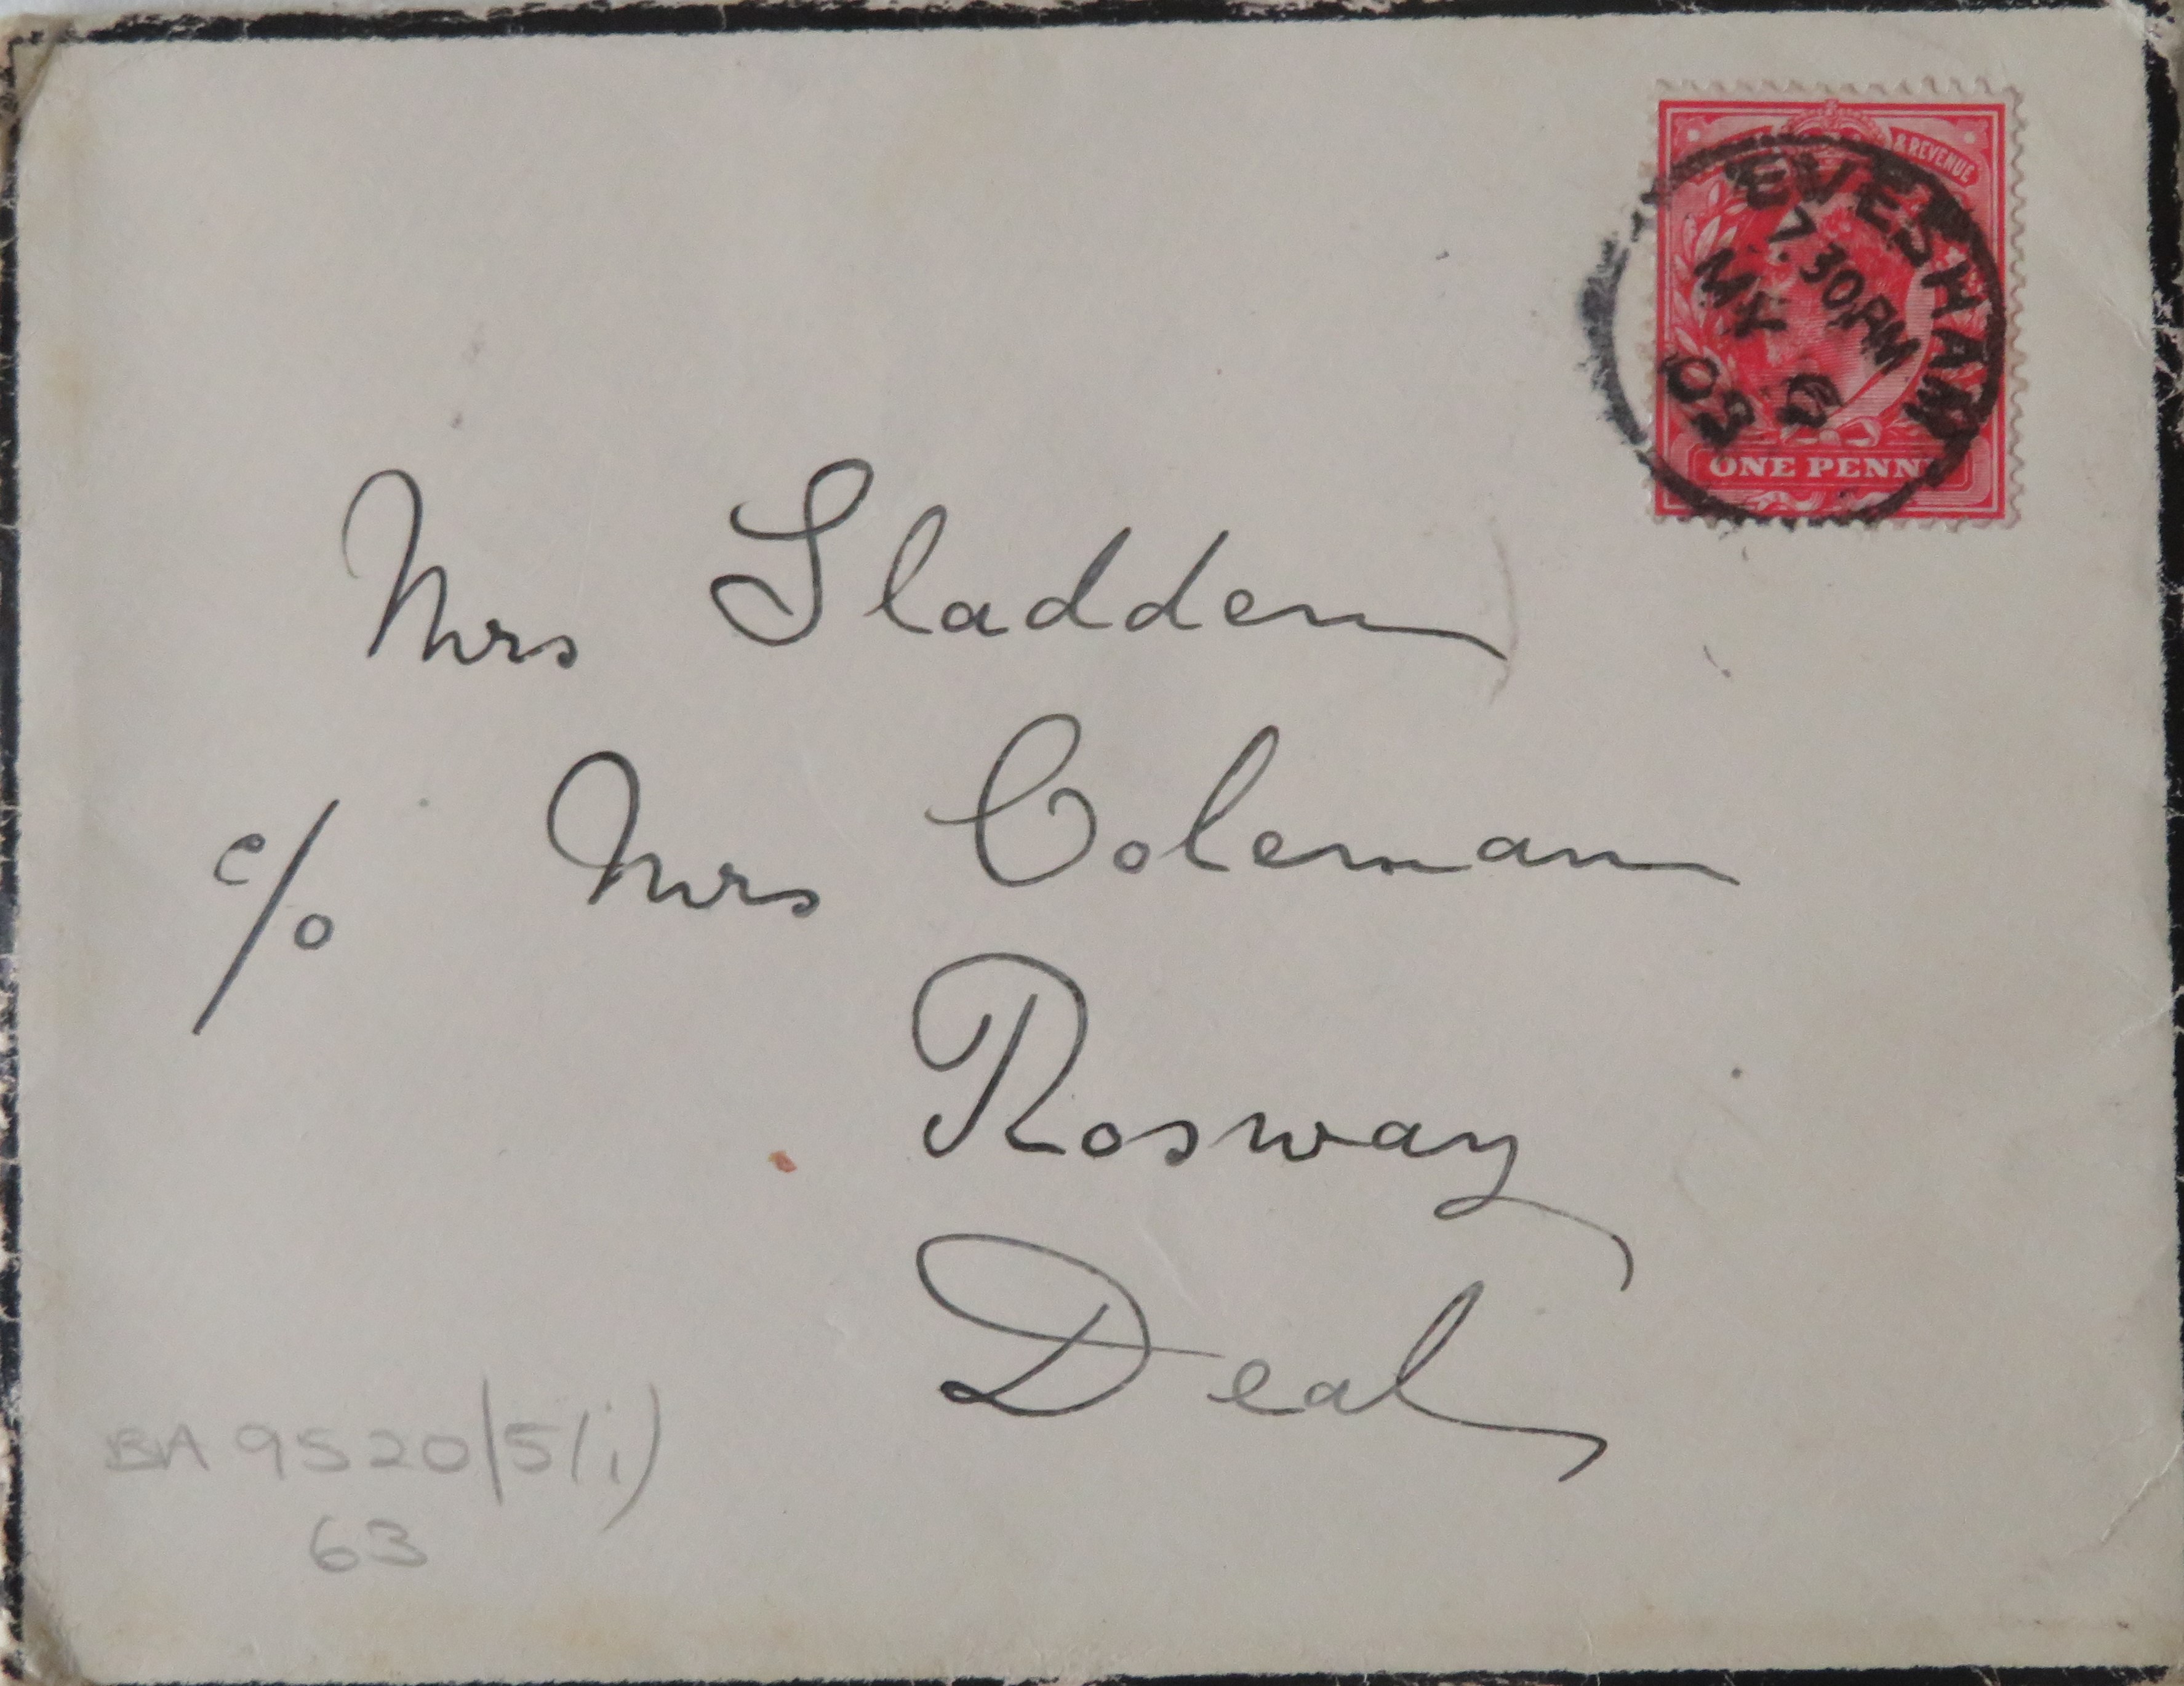 & REVENUE
EVESHAM
7.30PM
MY 6
ONE PENNY
Mrs Sladden
c/o Mrs Coleman
Rosway
Deal
BA 9520/5/i)
63